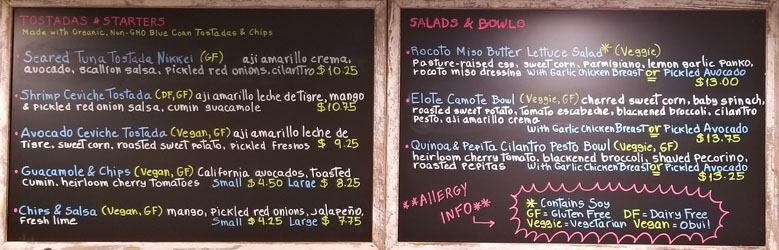 TOSTADAS & STARTERS
Made with Organic, Non-GMO Blue Corn Tostadas & Chips
• Seared Tuna Tostada Nikkei (GF) aji amarillo crema,
avocado, scallion salsa, pickled red onions, cilantro $10.25
• Shrimp Ceviche Tostada (DF,GF) aji amarillo leche de Tigre, mango
& pickled red onion salsa, cumin guacamole $10.75
• Avocado Ceviche Tostada (Vegan, GF) aji amarillo leche de
Tigre, sweet corn, roasted sweet potato, pickled fresnos $ 9.25
• Guacamole & Chips (Vegan, GF) California avocados, toasted
cumin, heirloom cherry tomatoes Small $4.50 Large $ 8.25
• Chips & Salsa (Vegan, GF) mango, pickled red onions, jalapeño,
fresh lime Small $4.25 Large $ 7.75
SALADS & BOWLS
• Rocoto Miso Butter Lettuce Salad* (Veggie)
Pasture-raised egg, sweet corn, parmigiano, lemon garlic panko,
rocoto miso dressing with Garlic Chicken Breast or Pickled Avocado
$13.00
• Elote Camote Bowl (Veggie, GF) charred sweet corn, baby spinach,
roasted sweet potato, tomato escabeche, blackened broccoli, cilantro
pesto, aji amarillo crema
with Garlic Chicken Breast or Pickled Avocado
$13.75
• Quinoa & Pepita Cilantro Pesto Bowl (Veggie, GF)
heirloom cherry tomato, blackened broccoli, shaved pecorino,
roasted pepitas with Garlic Chicken Breast or Pickled Avocado
$13.25
**ALLERGY
INFO**
*-Contains Soy
GF=Gluten Free DF=Dairy Free
Veggie=Vegetarian Vegan=Obvi!